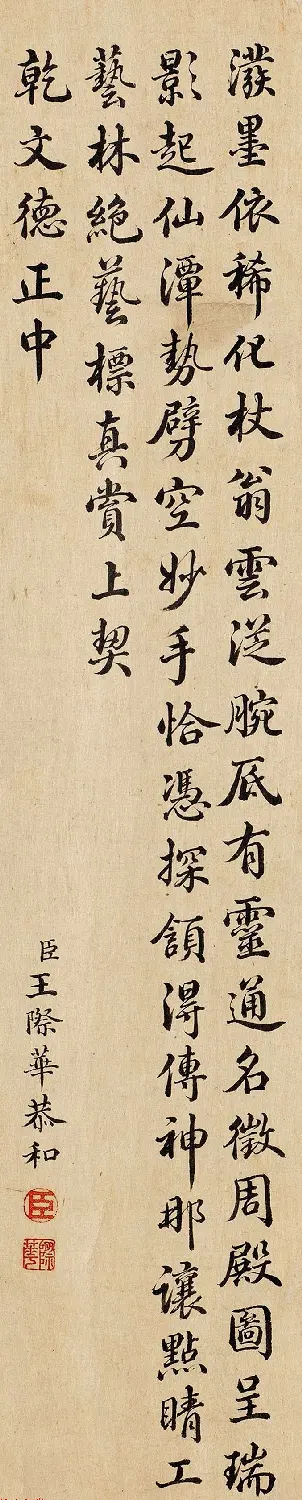 潑墨依稀化杖翁雲從腕底有靈通名徵周殿圖呈瑞
影起仙潭勢劈空妙手恰憑探頷得傳神那讓點睛工
藝林絕藝標真賞上契
乾文德正中
臣王際華恭和
臣
際華